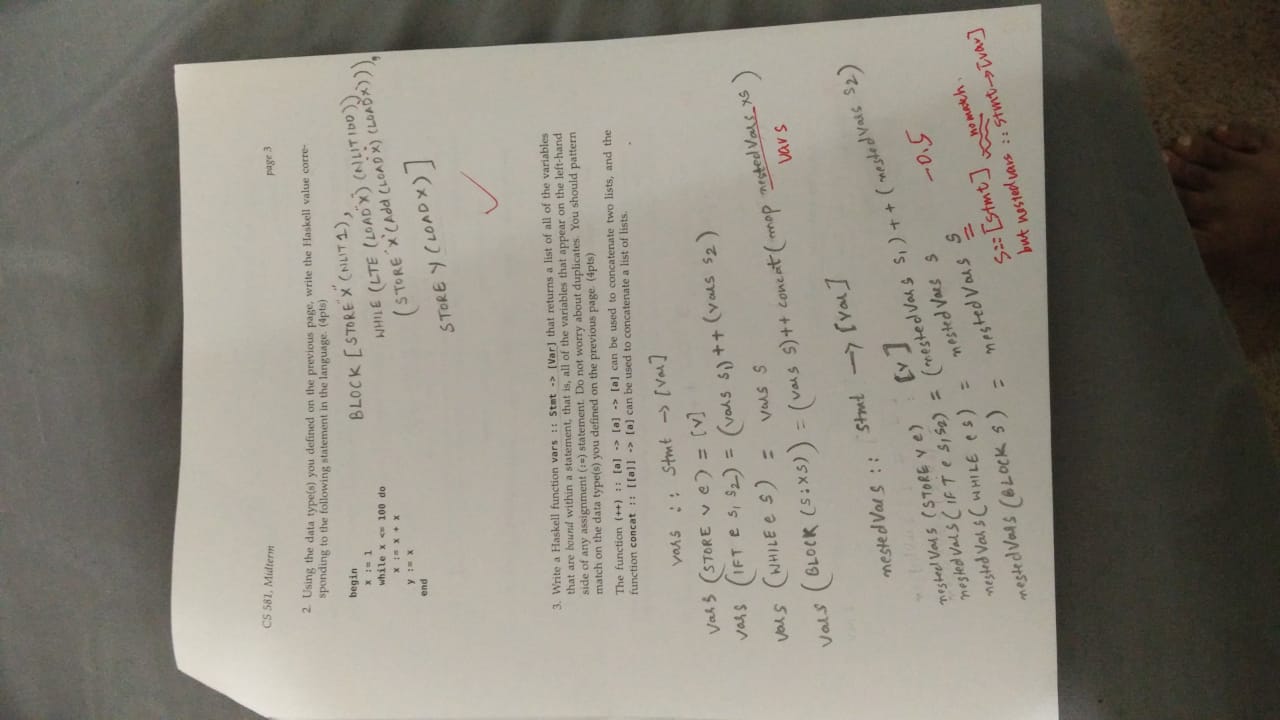 CS 581, Midterm
page 3
2. Using the data type(s) you defined on the previous page, write the Haskell value corre-
sponding to the following statement in the language. (4pts)
begin
x := 1
while x <= 100 do
x := x + x
y := x
end
BLOCK [STORE "X" (NLIT 1),
WHILE (LTE (LOAD "X") (NLIT 100))
(STORE "X" (Add (LOAD "X") (LOAD "X"))),
STORE Y (LOAD X)]
3. Write a Haskell function vars :: Stmt -> [Var] that returns a list of all of the variables
that are bound within a statement, that is, all of the variables that appear on the left-hand
side of any assignment (:=) statement. Do not worry about duplicates. You should pattern
match on the data type(s) you defined on the previous page. (4pts)
The function (++) :: [a] -> [a] -> [a] can be used to concatenate two lists, and the
function concat :: [[a]] -> [a] can be used to concatenate a list of lists.
vars :: Stmt -> [Var]
vars (STORE v e) = [v]
vars (IFT e s1 s2) = (vars s1) ++ (vars s2)
vars (WHILE e s) = vars s
vars (BLOCK (s:xs)) = (vars s) ++ concat (map nestedVars xs)
vars
nestedVars :: Stmt -> [Var]
nestedVars (STORE v e) [v]
nestedVars (IFT e s1 s2) = (nestedVars s1) ++ (nestedVars s2)
nestedVars (WHILE e s) = nestedVars s
nestedVars (BLOCK s) = nestedVars s
-0.5
s :: [Stmt] no match.
but nestedvars :: Stmt -> [var]